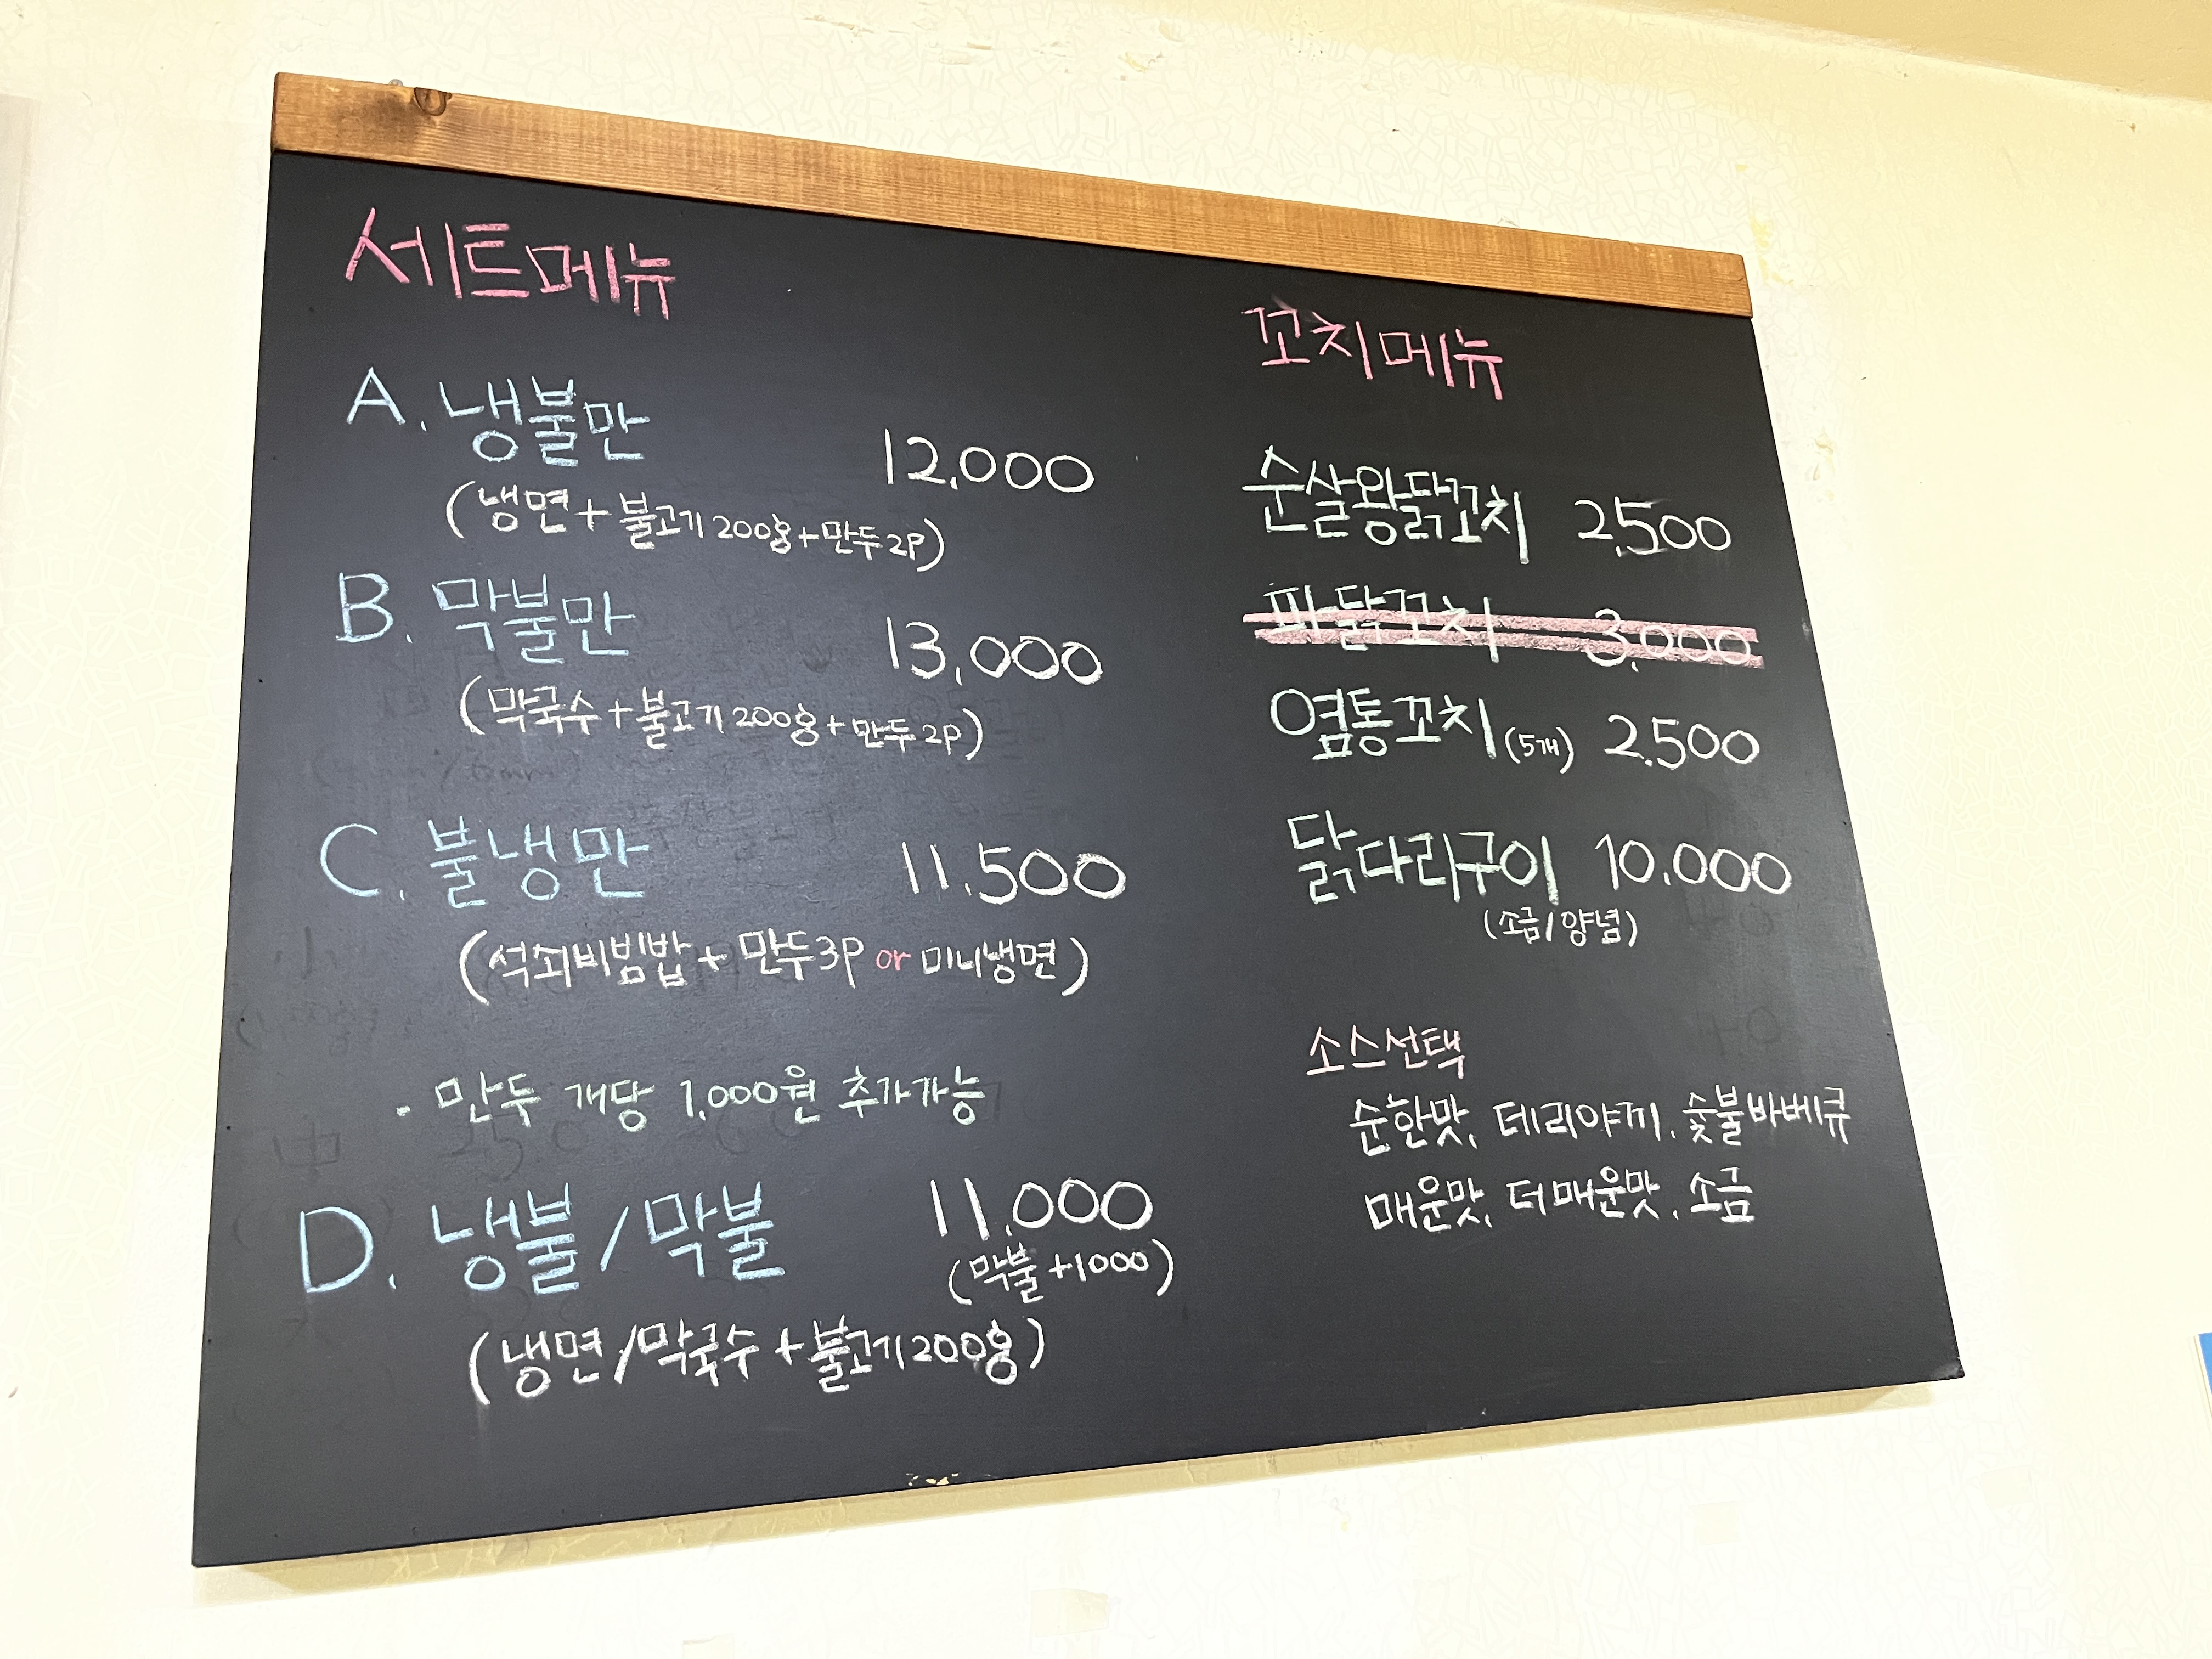 세트메뉴
A. 냉불만 12,000
(냉면+불고기200g+만두2P)
B. 막불만 13,000
(막국수+불고기200g+만두2P)
C. 불냉만 11,500
(석쇠비빔밥+만두3P or 미니냉면)
· 만두 개당 1,000원 추가가능
D. 냉불/막불 11,000
(막불+1000)
(냉면/막국수+불고기200g)
꼬치메뉴
순살왕닭꼬치 2,500
파닭꼬치 3,000
염통꼬치(5개) 2,500
닭다리구이 10,000
(소금/양념)
소스선택
순한맛, 데리야끼, 숯불바베큐
매운맛, 더매운맛, 소금